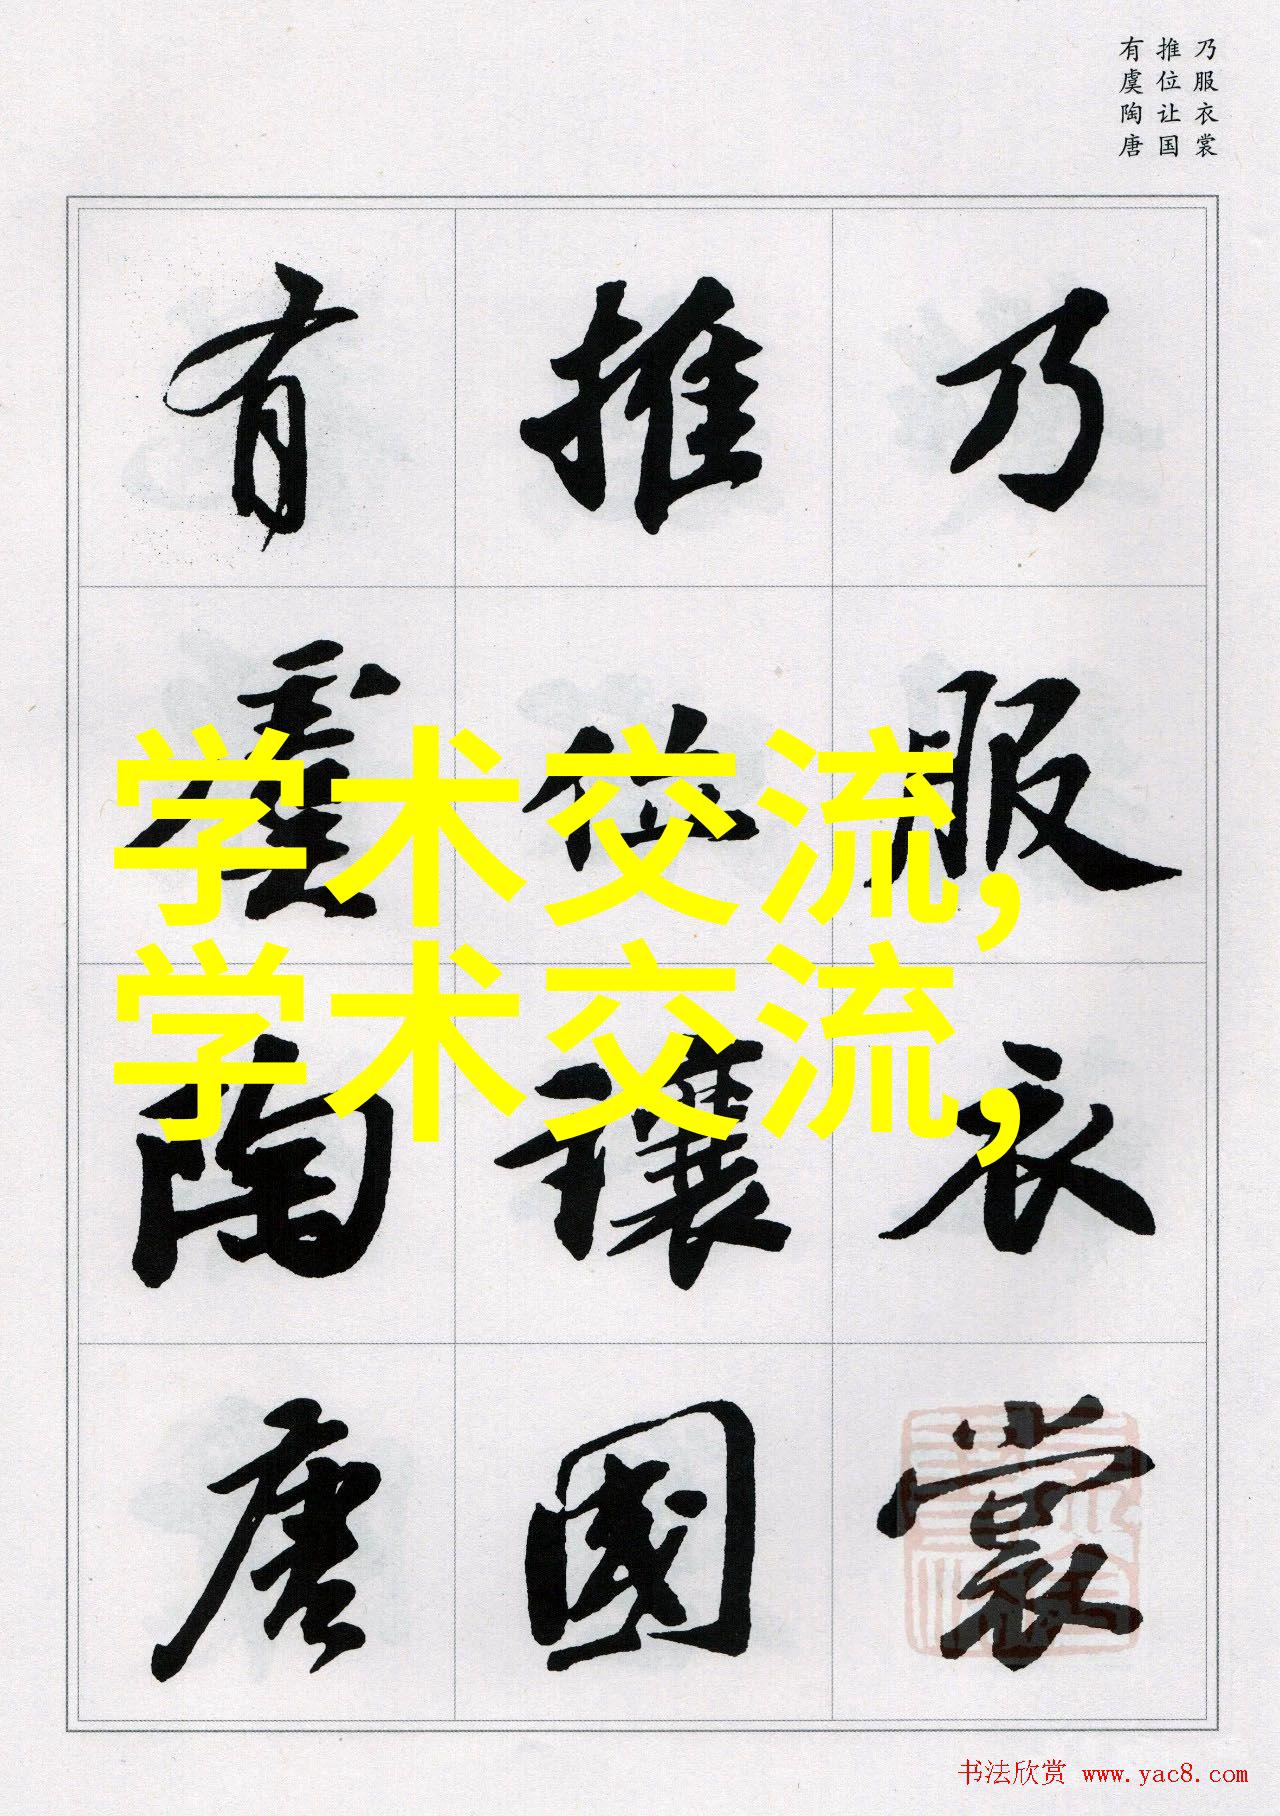 乃服衣裳
推位让国
有虞陶唐
乃服衣裳
推位讓國
有虞陶唐
学术交流,
学术交流,
书法欣赏 www.yac8.com